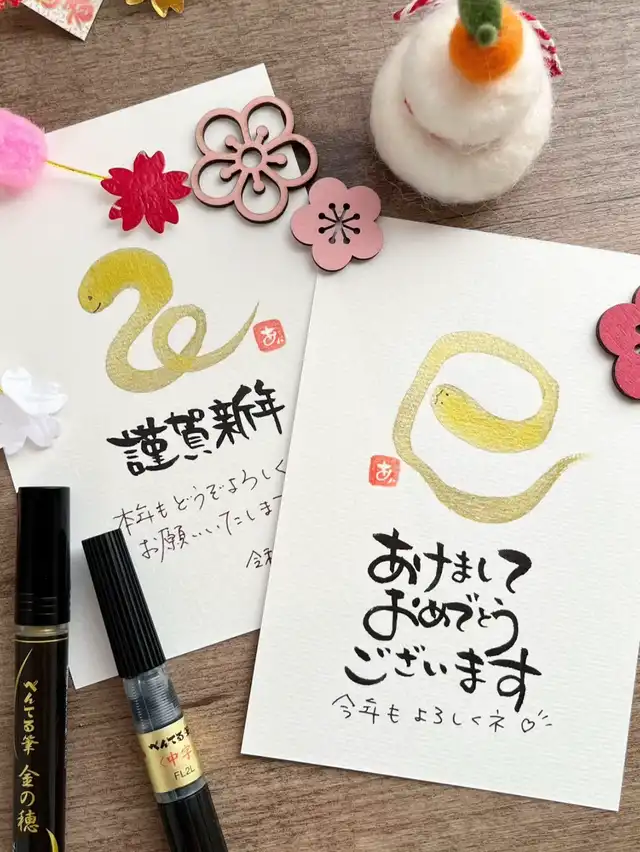 謹賀新年
本年もどうぞよろしく
お願いいたしま
令和
あけまして
おめでとう
ございます
今年もよろしくネ♡
あ
あ
ぺんてる筆 金の穂
ぺんてる筆
〈中字〉
FL2L